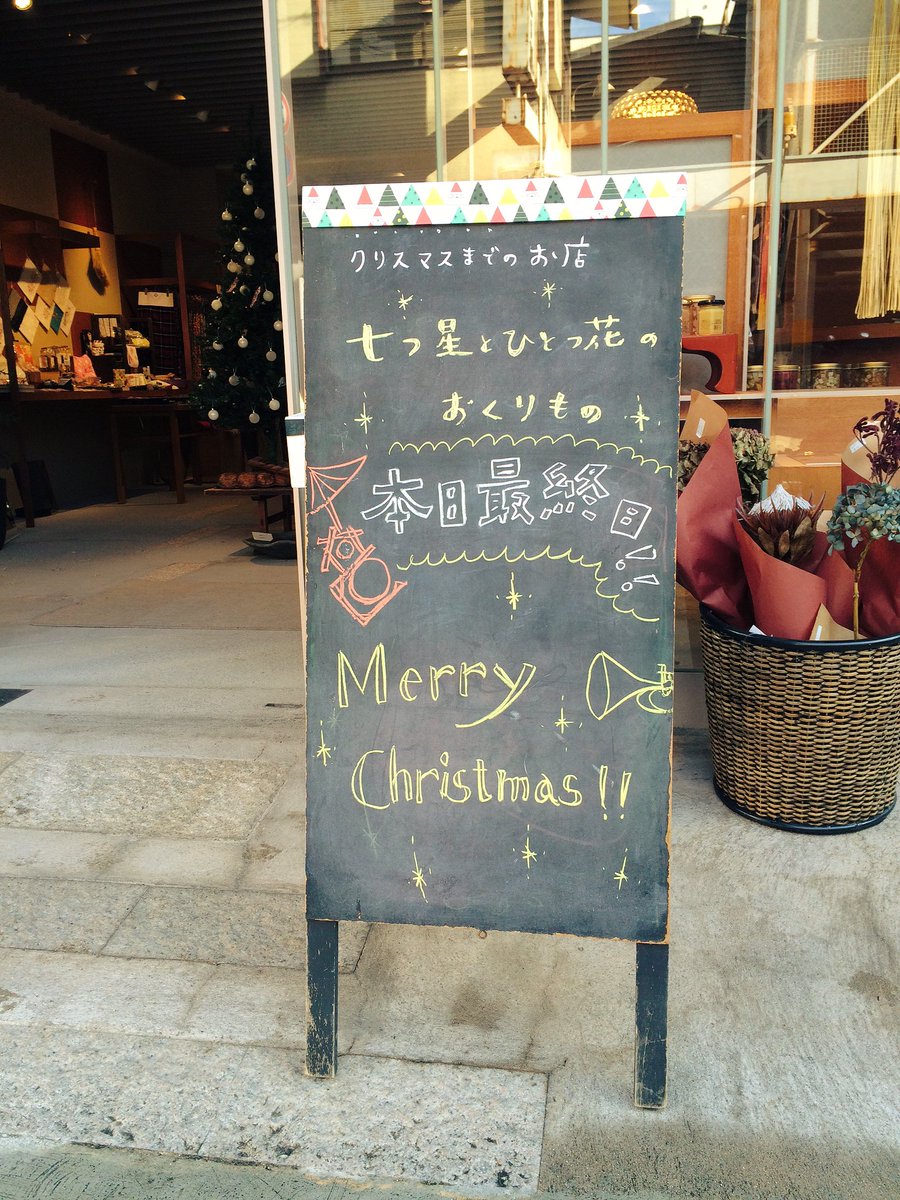 クリスマスまでのお店
七つ星とひとつ花の
おくりもの
本日最終日!!
Merry
Christmas!!